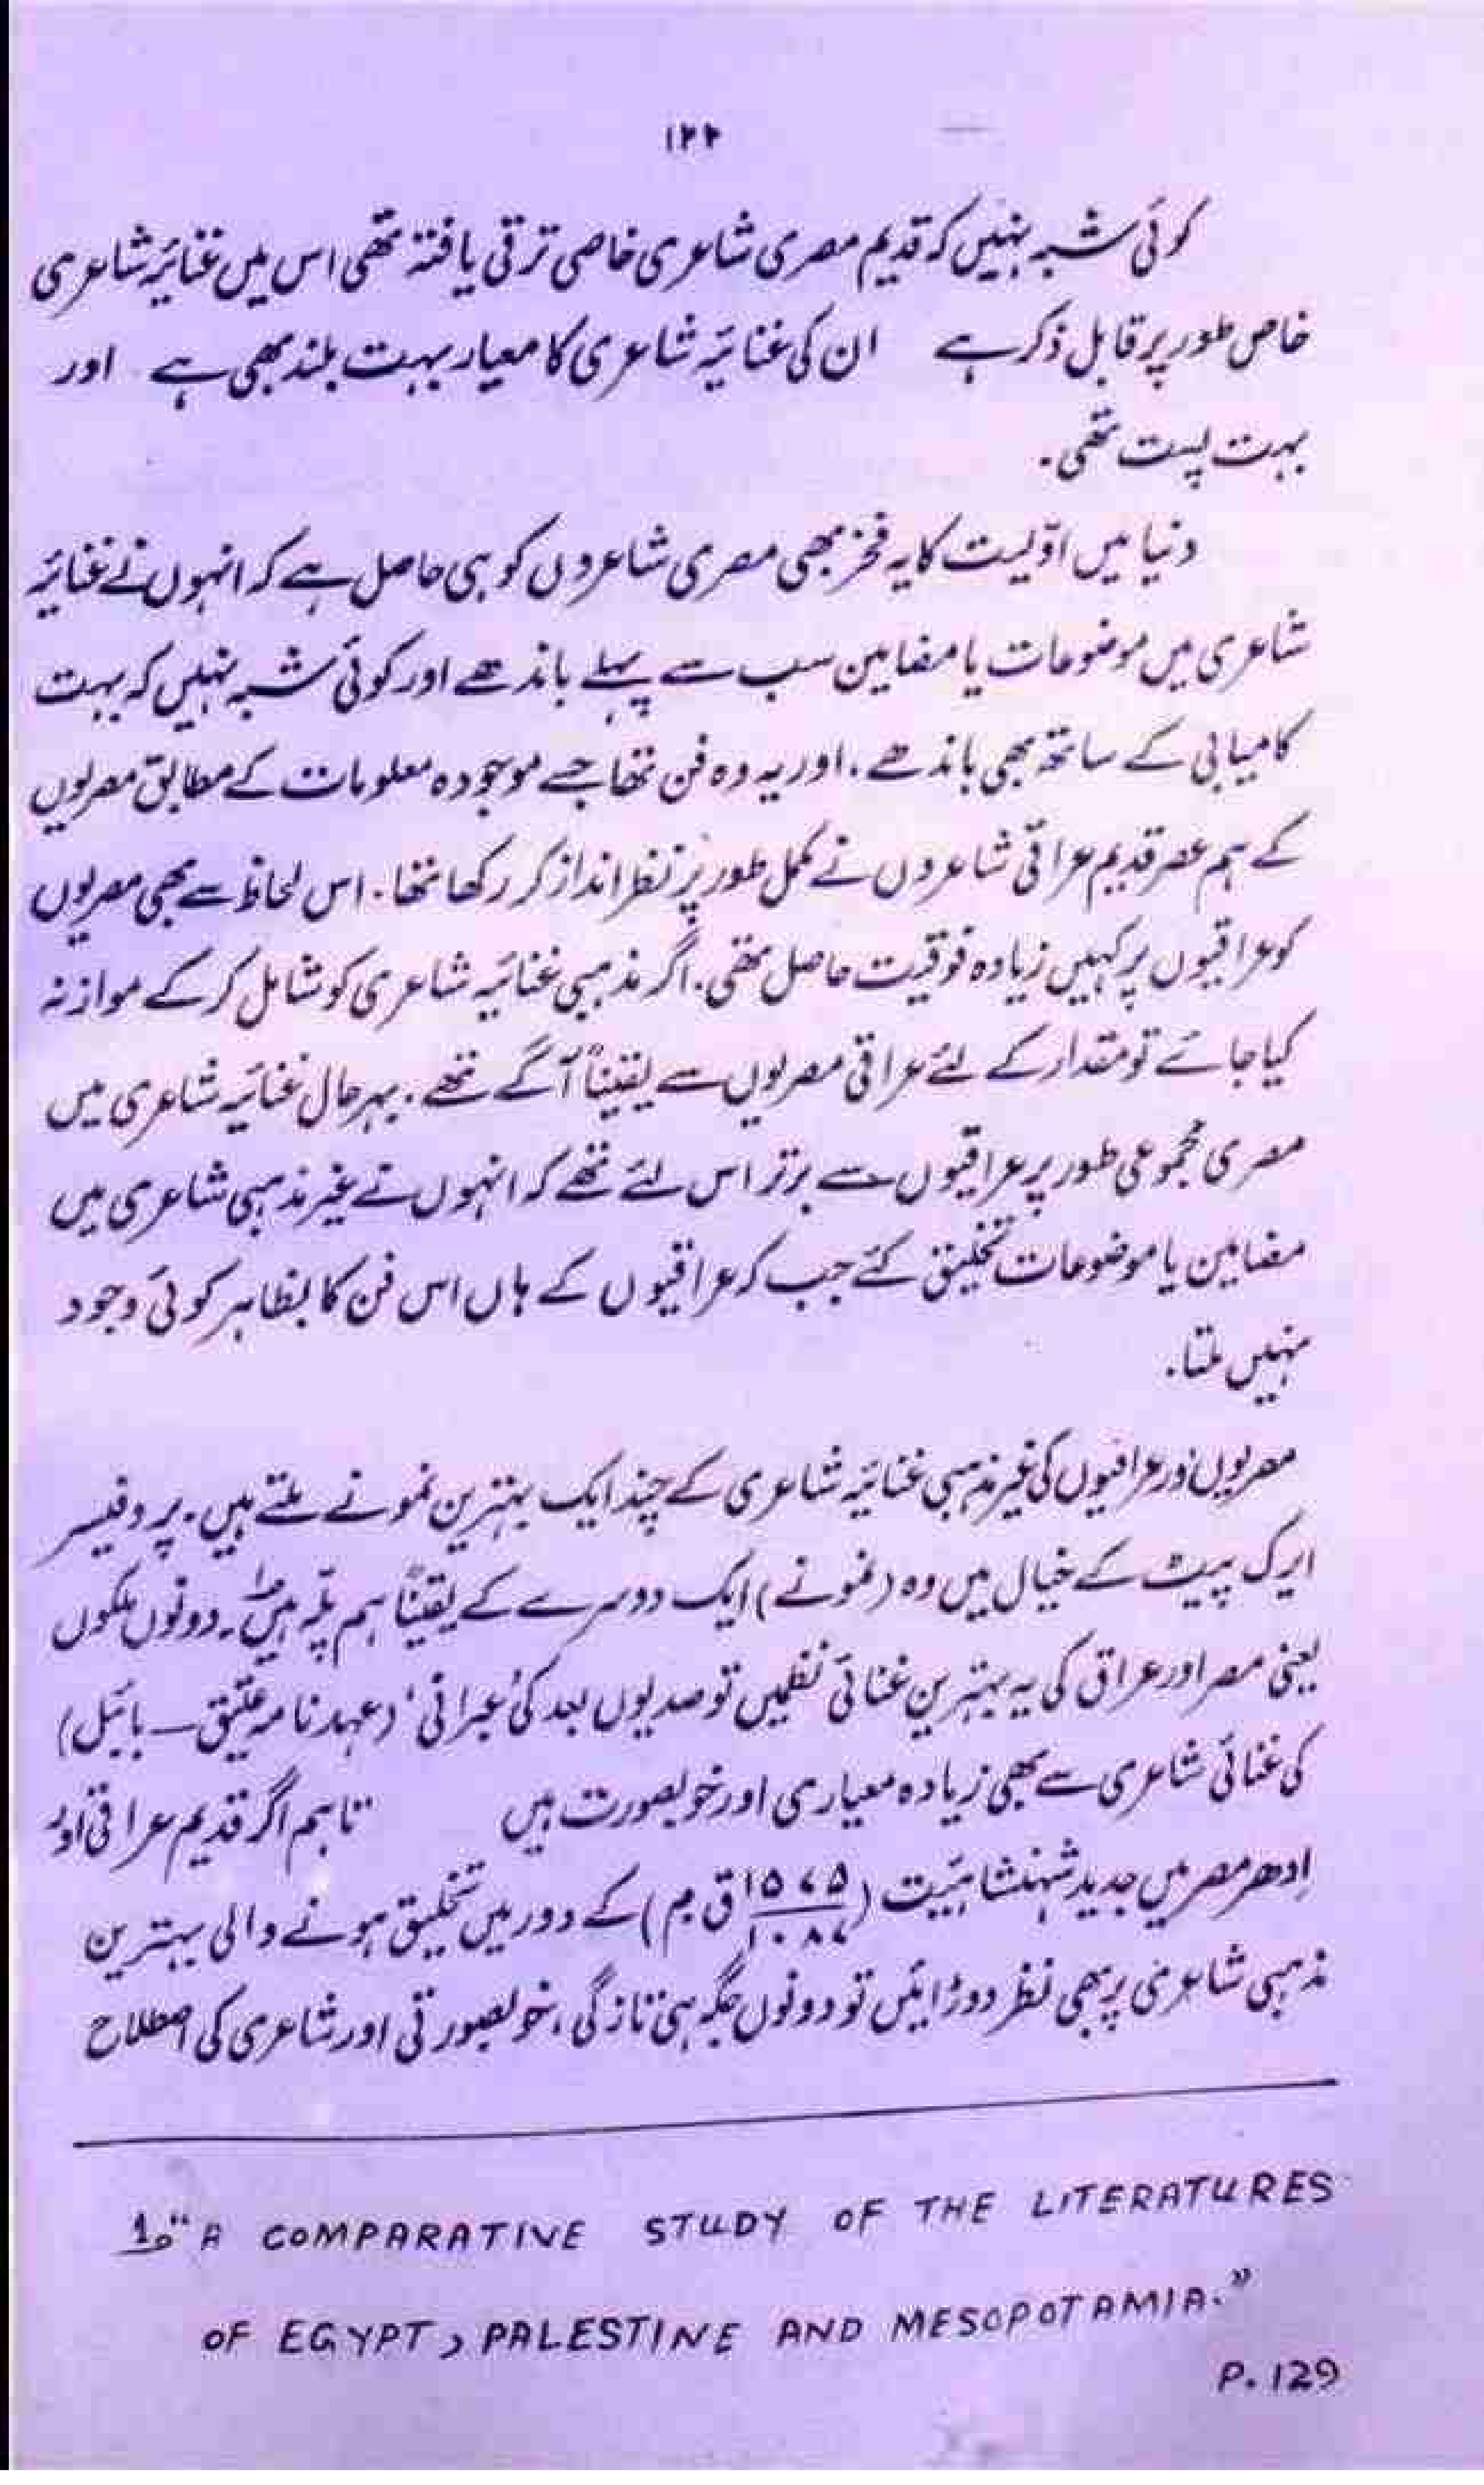 ۱۲۲
کوئی شبہ نہیں کہ قدیم مصری شاعری خاصی ترقی یافتہ تھی اس میں غنائیہ شاعری
خاص طور پر قابل ذکر ہے ان کی غنائیہ شاعری کا معیار بہت بلند بھی ہے اور
بہت پست تھی۔
دنیا میں اوّلیت کا یہ فخر بھی مصری شاعروں کو ہی حاصل ہے کہ انہوں نے غنائیہ
شاعری میں موضوعات یا مضامین سب سے پہلے باندھے اور کوئی شبہ نہیں کہ بہت
کامیابی کے ساتھ بھی باندھے، اور یہ وہ فن تھا جسے موجودہ معلومات کے مطابق مصریوں
کے ہم عصر قدیم عراقی شاعروں نے مکمل طور پر نظر انداز کر رکھا تھا۔ اس لحاظ سے بھی مصریوں
کو عراقیوں پر کہیں زیادہ فوقیت حاصل تھی۔ اگر مذہبی غنائیہ شاعری کو شامل کر کے موازنہ
کیا جائے تو مقدار کے لئے عراقی مصریوں سے یقیناً آگے تھے۔ بہرحال غنائیہ شاعری میں
مصری مجموعی طور پر عراقیوں سے برتر اس لئے تھے کہ انہوں نے غیر مذہبی شاعری میں
مضامین یا موضوعات تخلیق کئے جب کہ عراقیوں کے ہاں اس فن کا بظاہر کوئی وجود
نہیں ملتا۔
مصریوں اور عراقیوں کی غیر مذہبی غنائیہ شاعری کے چند ایک بہترین نمونے ملتے ہیں۔ پروفیسر
ایرک پیٹ کے خیال میں وہ (نمونے) ایک دوسرے کے یقیناً ہم پلّہ ہیں۔ دونوں ملکوں
یعنی مصر اور عراق کی یہ بہترین غنائی نظمیں تو صدیوں بعد کی 'عبرانی' (عہد نامہ عتیق ـ بائبل)
کی غنائی شاعری سے بھی زیادہ معیاری اور خوبصورت ہیں تاہم اگر قدیم عراقی اور
اِدھر مصر میں جدید شہنشاہیت (۱۵۷۵/۱۰۸۷ ق م) کے دور میں تخلیق ہونے والی بہترین
مذہبی شاعری پر بھی نظر دوڑائیں تو دونوں جگہ ہی تازگی، خوبصورتی اور شاعری کی اصطلاح
1. "A COMPARATIVE STUDY OF THE LITERATURES
OF EGYPT, PALESTINE AND MESOPOTAMIA."
P. 129